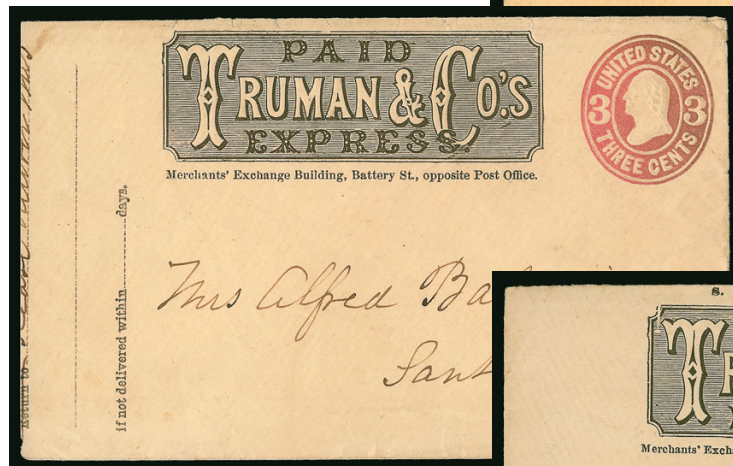 PAID
TRUMAN & CO.'S
EXPRESS.
Merchants' Exchange Building, Battery St., opposite Post Office.
UNITED STATES
3 3
THREE CENTS
Return to
if not delivered within days.
Mrs Alfred Ba
Sant
s.
TR
Merchants' Excha